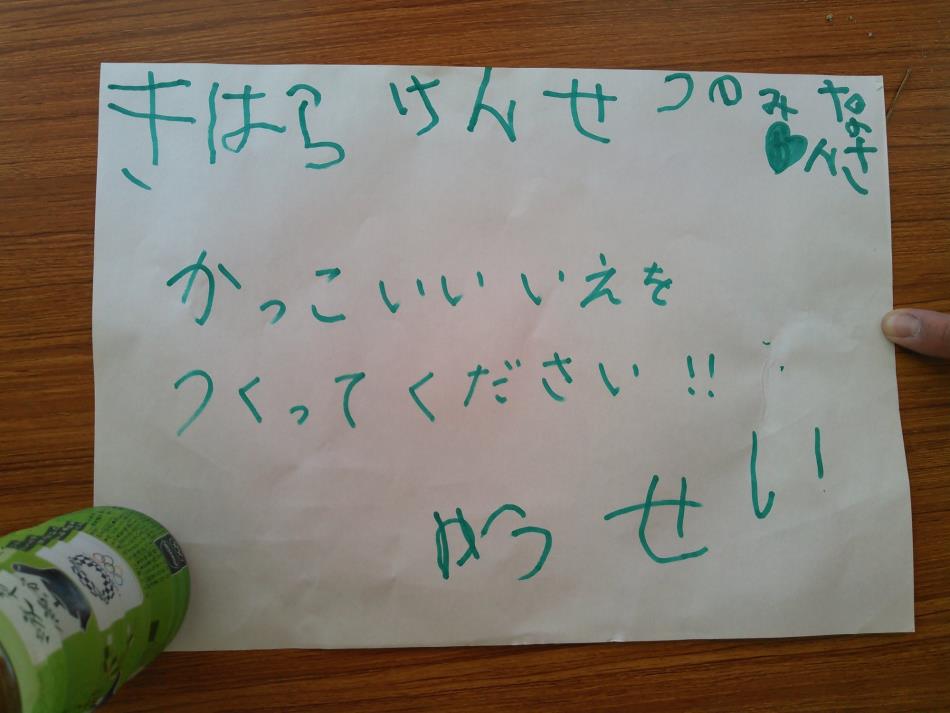 きはら けんせつの みなさん
かっこいい いえを
つくってください!!
ゆうせい